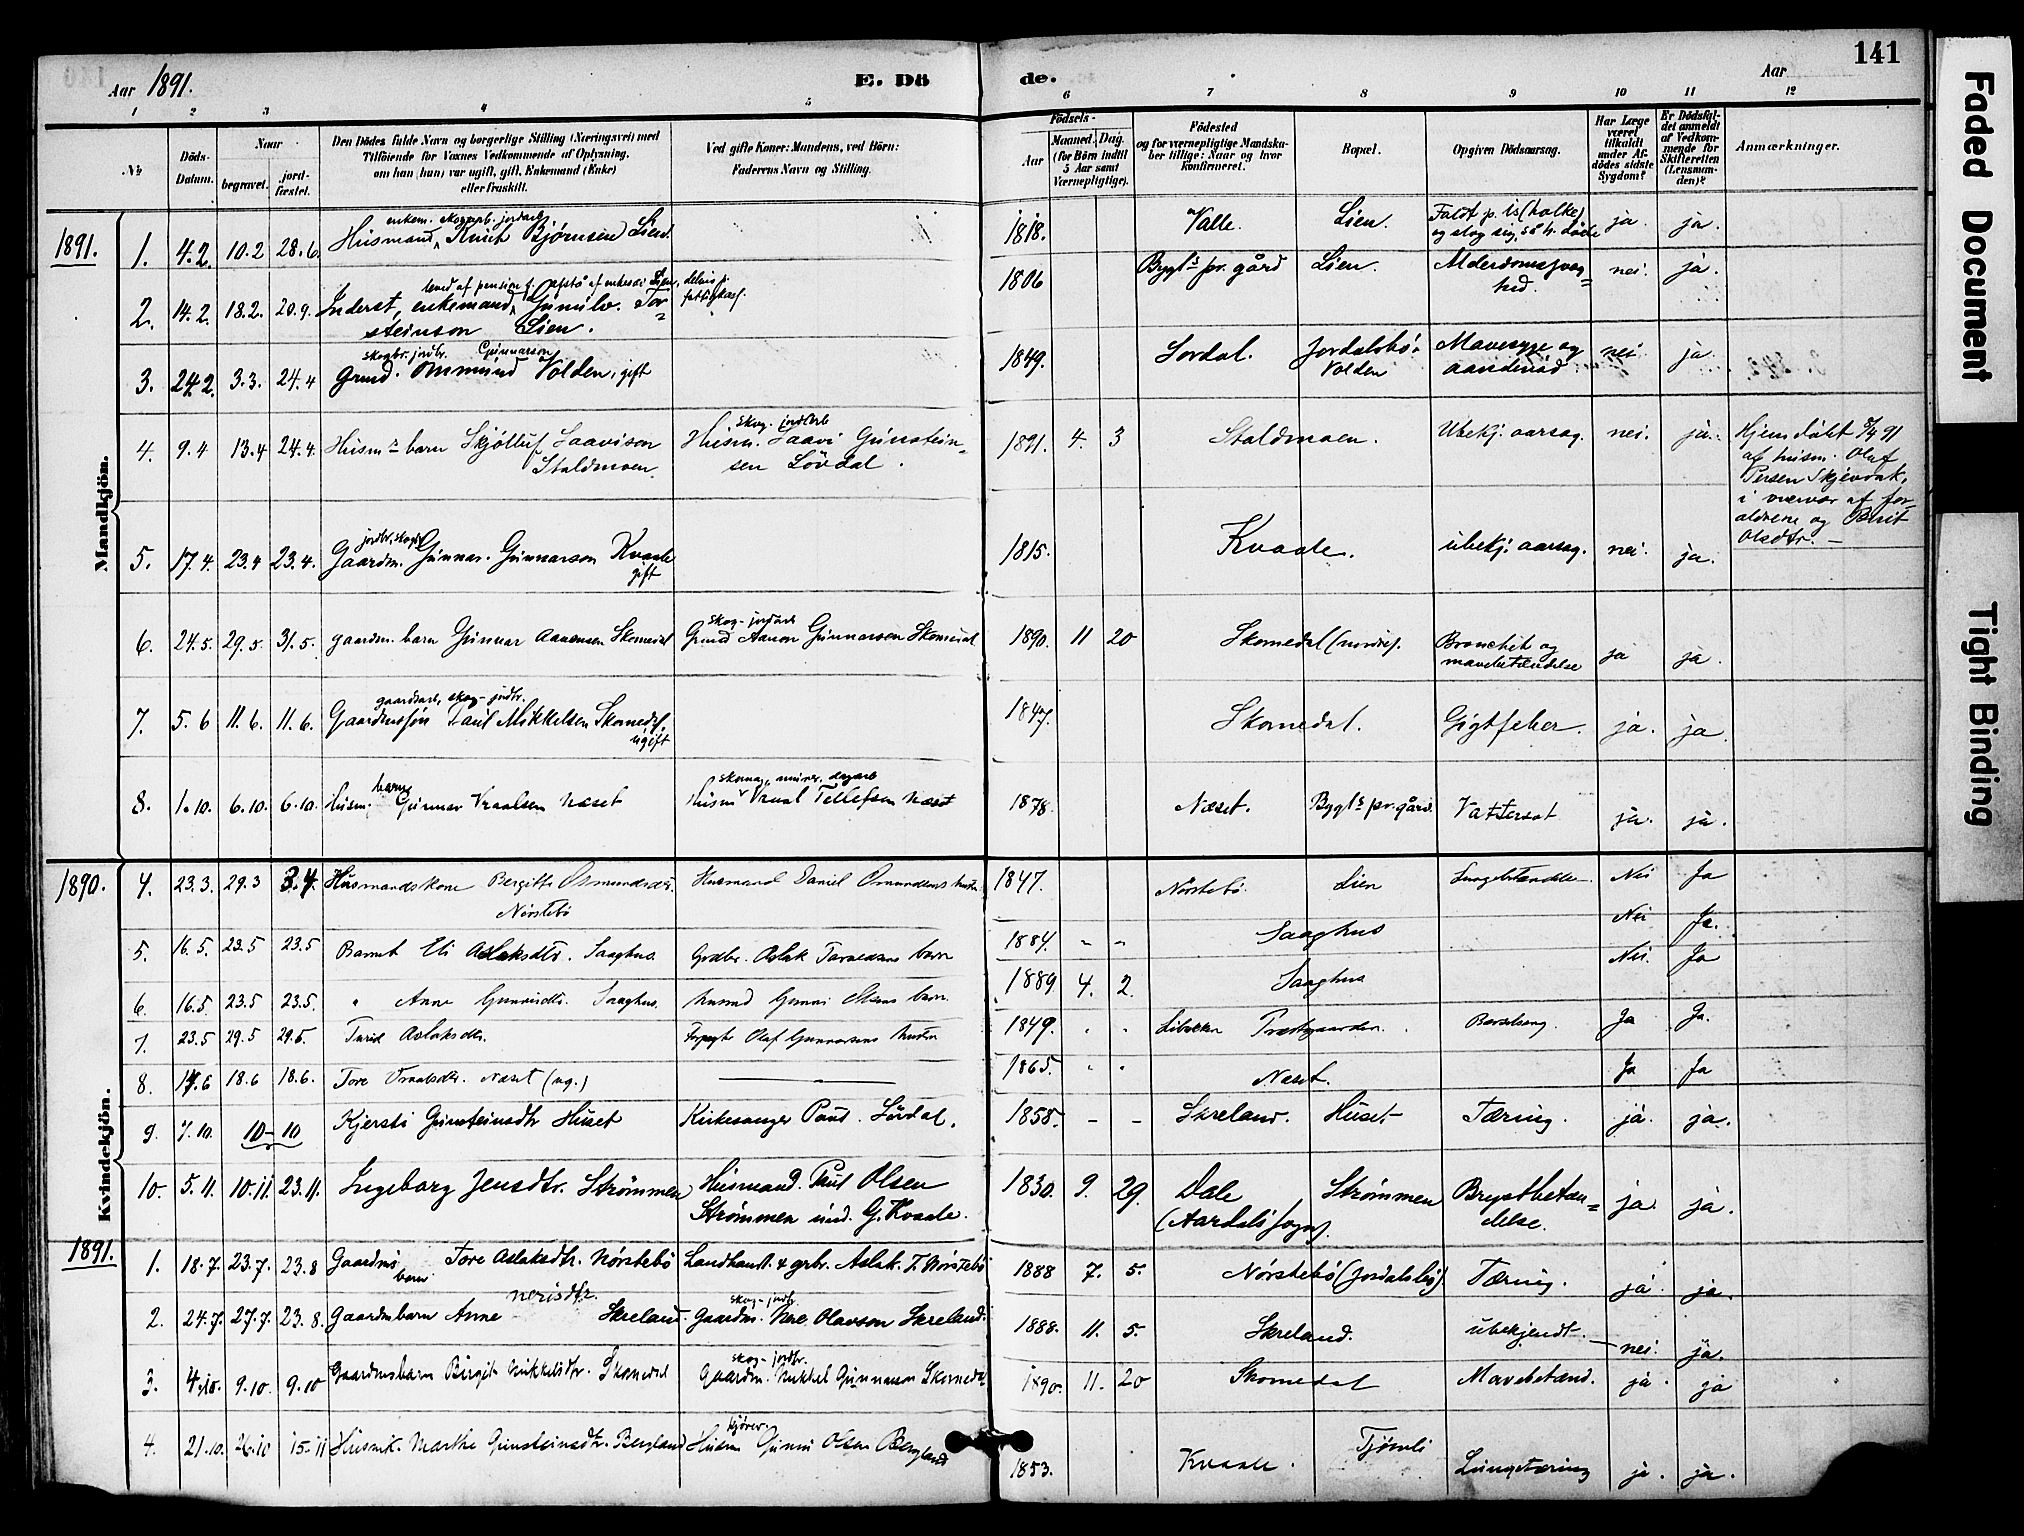 141
Aar 1891.
E. Dö
de.
Aar
1 2 3 4 5 6 7 8 9 10 11 12
No
Döds-Datum.
Naar
begravet.
jordfæstet.
Den Dödes fulde Navn og borgerlige Stilling (Næringsvei) med
Tilföiende for Voxnes Vedkommende af Oplysning,
om han (hun) var ugift, gift, Enkemand (Enke)
eller fraskilt.
Ved gifte Koner: Mandens, ved Börn:
Faderens Navn og Stilling.
Födsels-
Aar
Maaned. Dag.
(for Börn indtil
5 Aar samt
Værnepligtige).
Födested
og for værnepligtige Mandskaber tillige: Naar og hvor
konfirmeret.
Bopæl.
Opgiven Dödsaarsag.
Har Læge
været
tilkaldt
under Afdödes sidste
Sygdom?
Er Dödsfaldet anmeldt
af Vedkommende for
Skifteretten
(Lensmanden)?
Anmærkninger.
Mandkjön.
1891.
enkem. skogarb. jordarb.
1. 4.2. 10.2 28.6. Husmand, Knut Bjørnsen Lien. 1818. Valle. Lien. Faldt p. is (holke) og slog sig, så h. døde ja. ja.
2. 14.2. 18.2. 20.9. Inderst, enkemand, Gunnulv Torsteinson Lien. 1806 Bygl's pr. gård Lien. Alderdomssvaghed. nei. ja.
skogbr. jordbr. Gunnarson
3. 24.2. 3.3. 24.4 Grmd. Aasmund Volden, gift 1849. Lordal. Jordalsbö. Volden Mavesyge og aandenød. nei. ja.
skog- jordarb
4. 9.4 13.4 24.4. Husm's barn Skjölluf Saavison Staldmoen Husm. Saavi Gunsteinsen Lövdal. 1891. 4. 3 Staldmoen. Ubekj. aarsag. nei. ja. Hjemdöbt 8/4 91
af husm. Oluf
Persen Skjevrak,
i nærvær af forældrene og Berit
Olsdtr. —
jordbr. skogbr
5. 17.4. 23.4 23.4. Gaardm. Gunnar Gunnarson Kvaale gift 1815. Kvaale. ubekj. aarsag. nei. ja.
skog- jordarb
6. 24.5. 29.5. 31.5. gaardm. barn Gunnar Aanonsen Skomedal Grmd Aanon Gunnarson Skomedal 1890. 11 20 Skomedal (nordre). Bronchit og mavebetændelse ja ja.
gaardsarb, skog- jordbr.
7. 5.6 11.6. 11.6. Gaardmssøn Paul Mikkelsen Skomedal, ugift 1847. Skomedal. Gigtfeber. ja. ja.
8. 1.10. 6.10. 6.10. Husm. barn Gunnar Vraalsen Næset Husm Vraal Tellefsen Næset 1878. Næset. Bygl's pr. gård. Vattersot ja. ja.
Kvindekjön.
1890.
4. 23.3. 29.3 3.4. Husmandskone Bergitte Osmundsdtr. Nörstebö Husmand Daniel Osmundsens hustru 1847. Nörstebö. Lien Lungebetændelse Nei Ja
5. 16.5 23.5 23.5 Barnet Eli Aslaksdtr. Saaghus. Grdbr. Aslak Taraldsens barn 1884. - - Saaghus Nei Ja.
6. 16.5 23.5 23.5. " Anne Gunnisdtr. Saaghus. Husmd Gunni Olsens barn. 1889 4. 2. Saaghus Nei. Ja
7. 23.5 29.5 29.5. Turid Aslaksdtr. Forpagter Olaf Gunnarsens hustru 1849. Præstgaarden. Barselseng. Ja Ja.
8. 14.6 18.6 18.6. Tore Vraalsdtr. Næset (ug.) 1865. Næset. Ja Ja
9. 7.10. 10-10 Kjersti Gunsteinsdtr Huset Kirkesanger Paul Lövdal. 1858. - - Skreland. Huset Tæring. ja. ja.
10. 5.11. 10.11. 23.11. Ingeborg Jensdtr. Strömmen Husmand. Paul Olsen Strömmen und. G. Kvaale. 1830. 9. 29. Dale (Aardals sogn). Strömmen Brystbetændelse. ja. ja.
1891.
1. 18.7. 23.7. 23.8 Gaardms barn Tore Aslaksdtr. Nörstebö Landhandl. & grbr. Aslak T. Nörstebö 1888 7. 5. Nörstebö (Jordalsbö) Tæring. ja. ja.
skog- jordbr.
2. 24.7. 27.7. 23.8. Gaardmbarn Anne Nerisdtr. Skreland. Gaardm. Nere Olavson Skreland. 1888. 11. 5. Skreland. ubekjendt. nei. ja.
skog- jordbr.
3. 4.10. 9.10. 9.10 Gaardmsbarn Birgit Mikkelsdtr. Skomedal Gaardm. Mikkel Gunnarson Skomedal 1890. 11. 20 Skomedal Mavebetænd. ja. ja
kjörer.
4. 21.10. 26.10 15.11 Husmk. Marthe Gunsteinsdtr. Bergland Husm Gunni Olsen Bergland 1853. Kvaale. Tjömli Lungetæring ja. ja.
Faded Document
Tight Binding